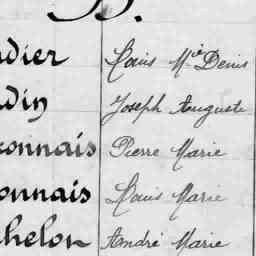 B.
dier Louis Mie Denis
din Joseph Auguste
onnais Pierre Marie
onnais Louis Marie
helon André Marie